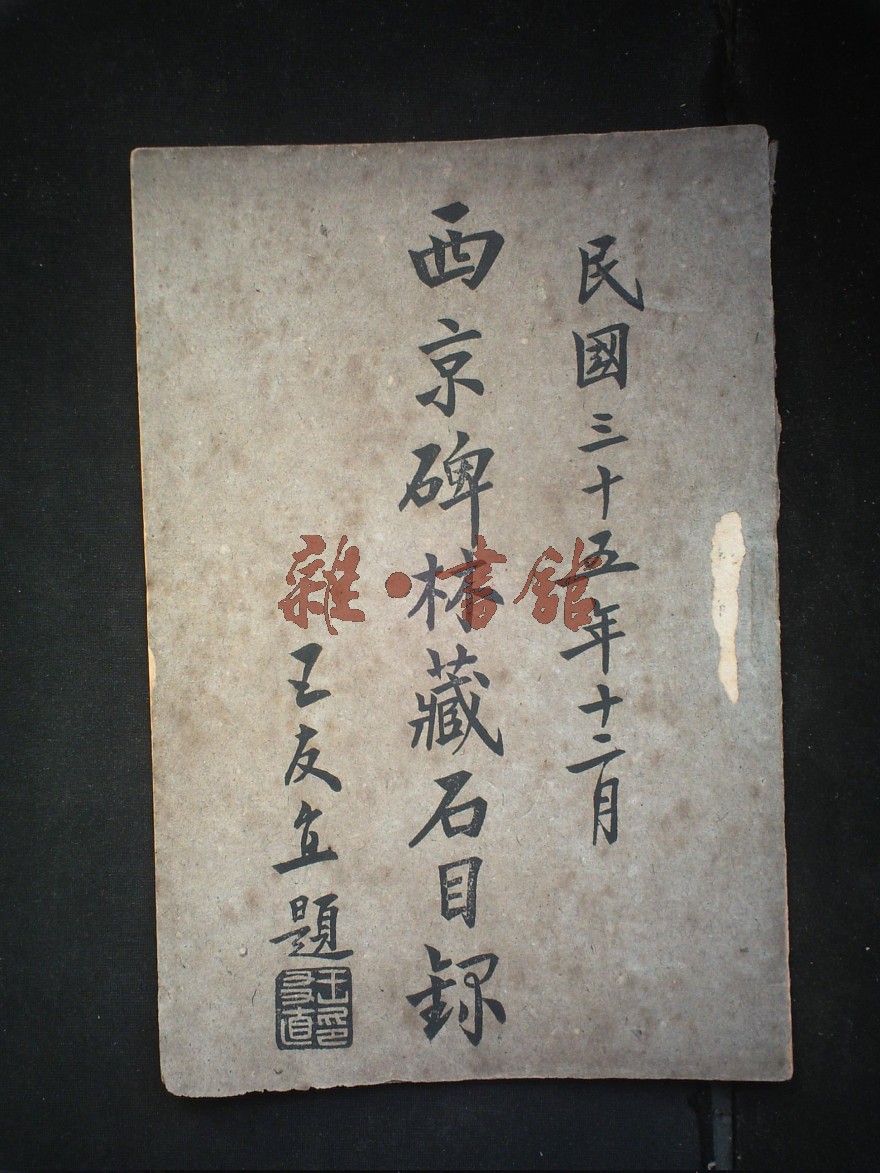 民國三十五年十二月
西京碑林藏石目録
王友直題
王友直印
雜·書館